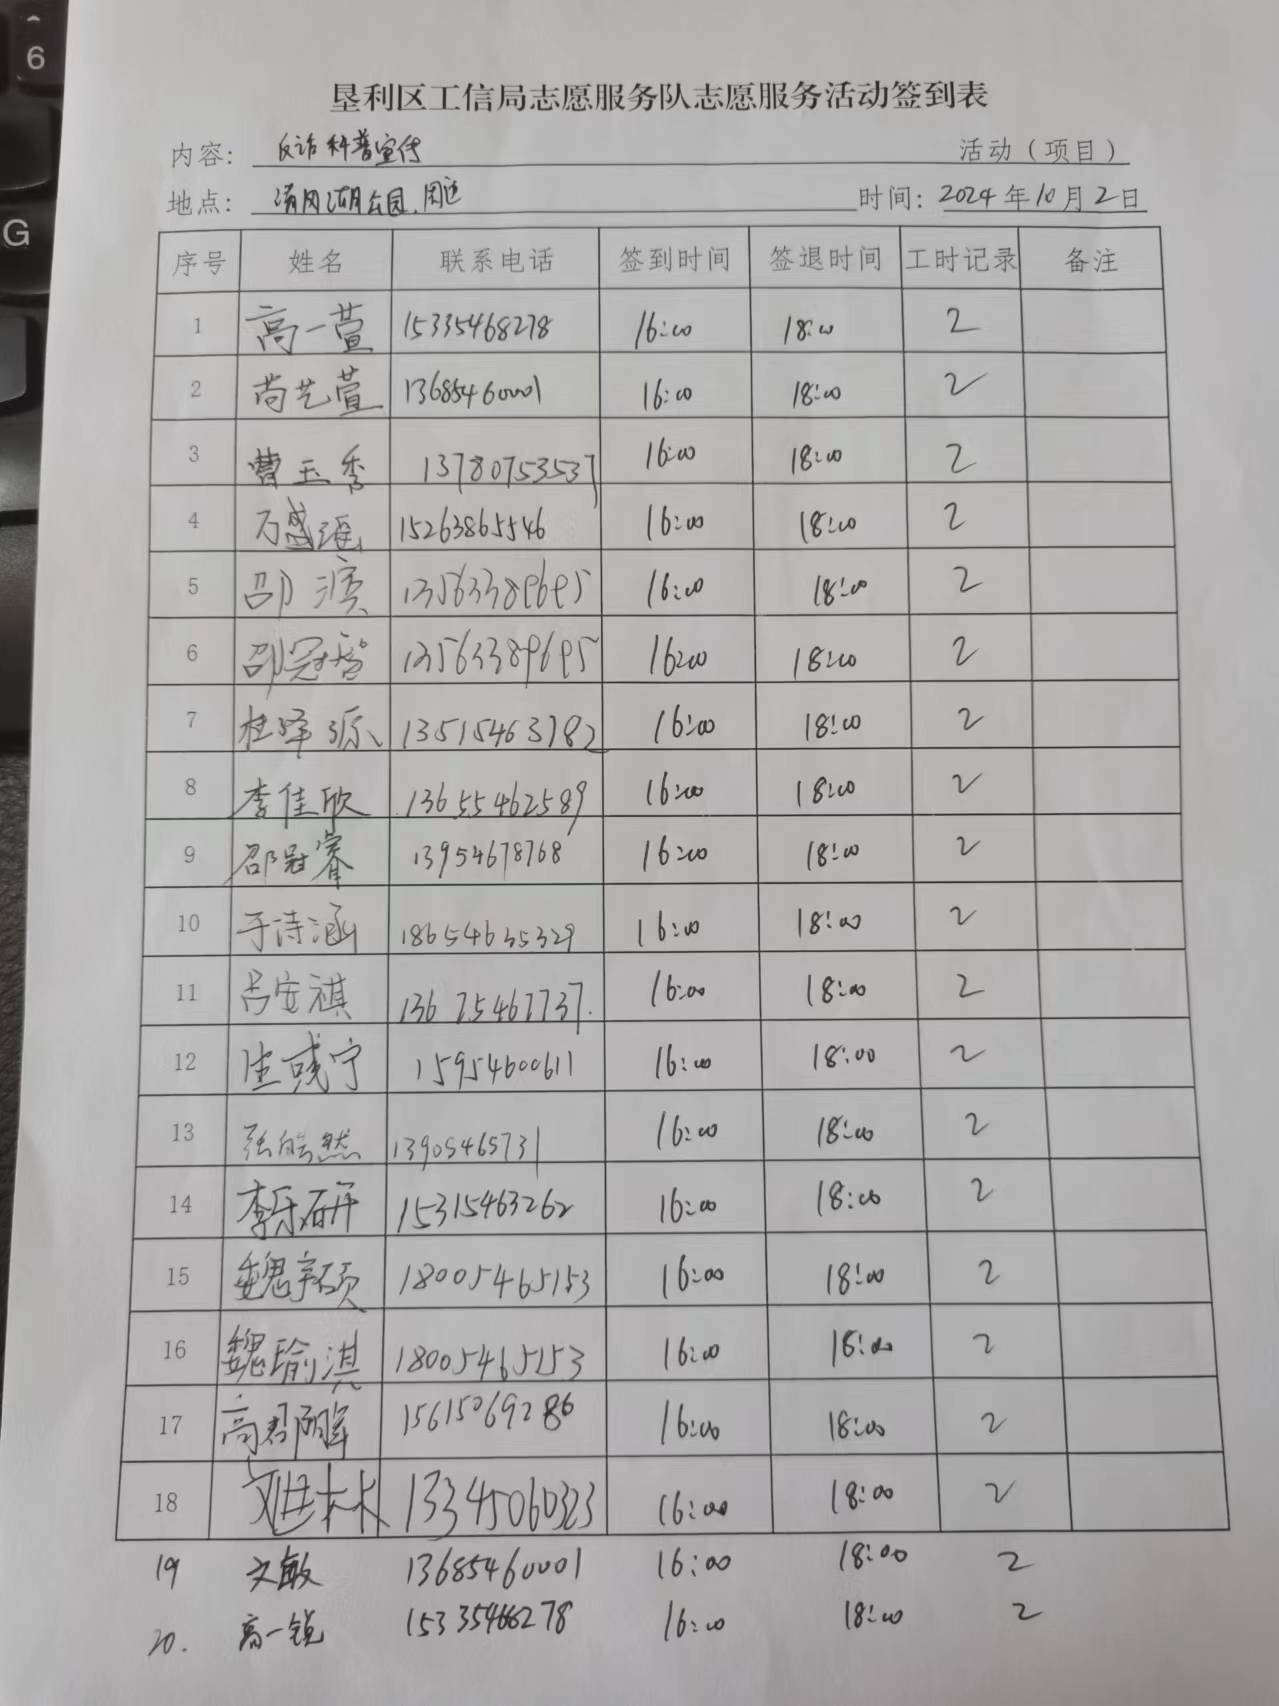 6
G
垦利区工信局志愿服务队志愿服务活动签到表
内容: 反诈科普宣传 活动（项目）
地点: 清风湖公园.周边 时间: 2024年10月2日
序号 姓名 联系电话 签到时间 签退时间 工时记录 备注
1 高一萱 15335468278 16:00 18:00 2
2 尚艺萱 13685460001 16:00 18:00 2
3 曹玉秀 13780753537 16:00 18:00 2
4 万盛瑶 15263865546 16:00 18:00 2
5 邵滨 13563389695 16:00 18:00 2
6 邵冠智 13563389695 16:00 18:00 2
7 桂泽源 13515463782 16:00 18:00 2
8 李佳欣 13655462589 16:00 18:00 2
9 邵冠睿 13954678768 16:00 18:00 2
10 于诗涵 18654635329 16:00 18:00 2
11 吕安祺 13675467737. 16:00 18:00 2
12 生彧宁 15954600611 16:00 18:00 2
13 张皓然 13905465731 16:00 18:00 2
14 李乐研 15315463262 16:00 18:00 2
15 18005465153 16:00 18:00 2
16 魏瑜淇 18005465153 16:00 18:00 2
17 高郡晖 15615069286 16:00 18:00 2
18 13345060323 16:00 18:00 2
19 文敏 13685460001 16:00 18:00 2
20. 高一锐 15335468278 16:00 18:00 2